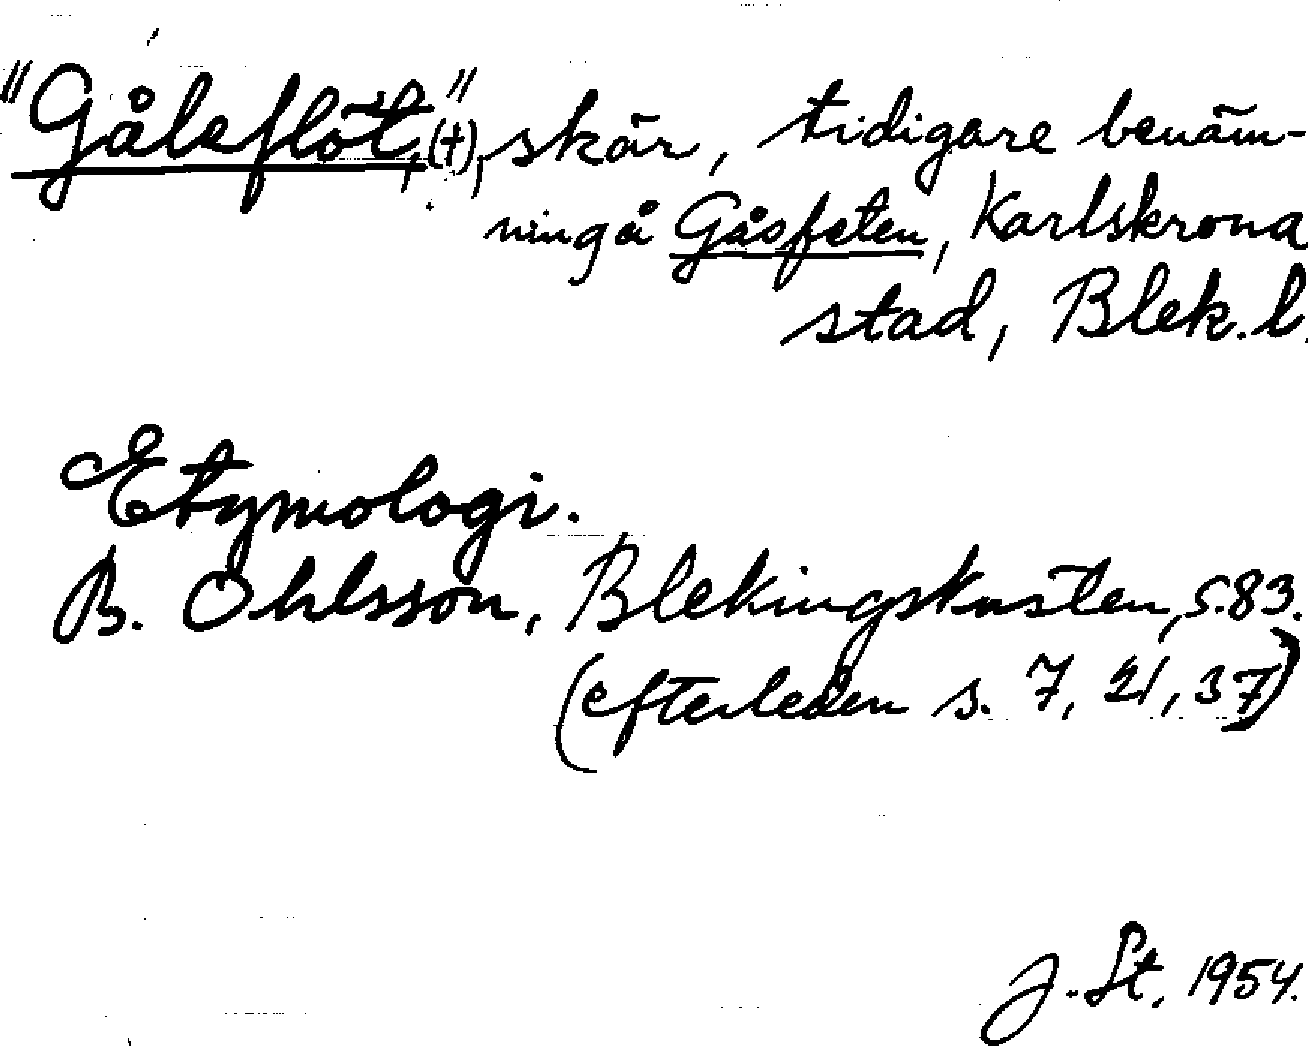 "Gåleflöt," (†), skär, tidigare benäm-
ning å Gåsfeten, Karlskrona
stad, Blek. l.
Etymologi.
B. Ohlsson, Blekingskusten, s. 83.
(efterleden s. 7, 21, 37)
J. St. 1954.